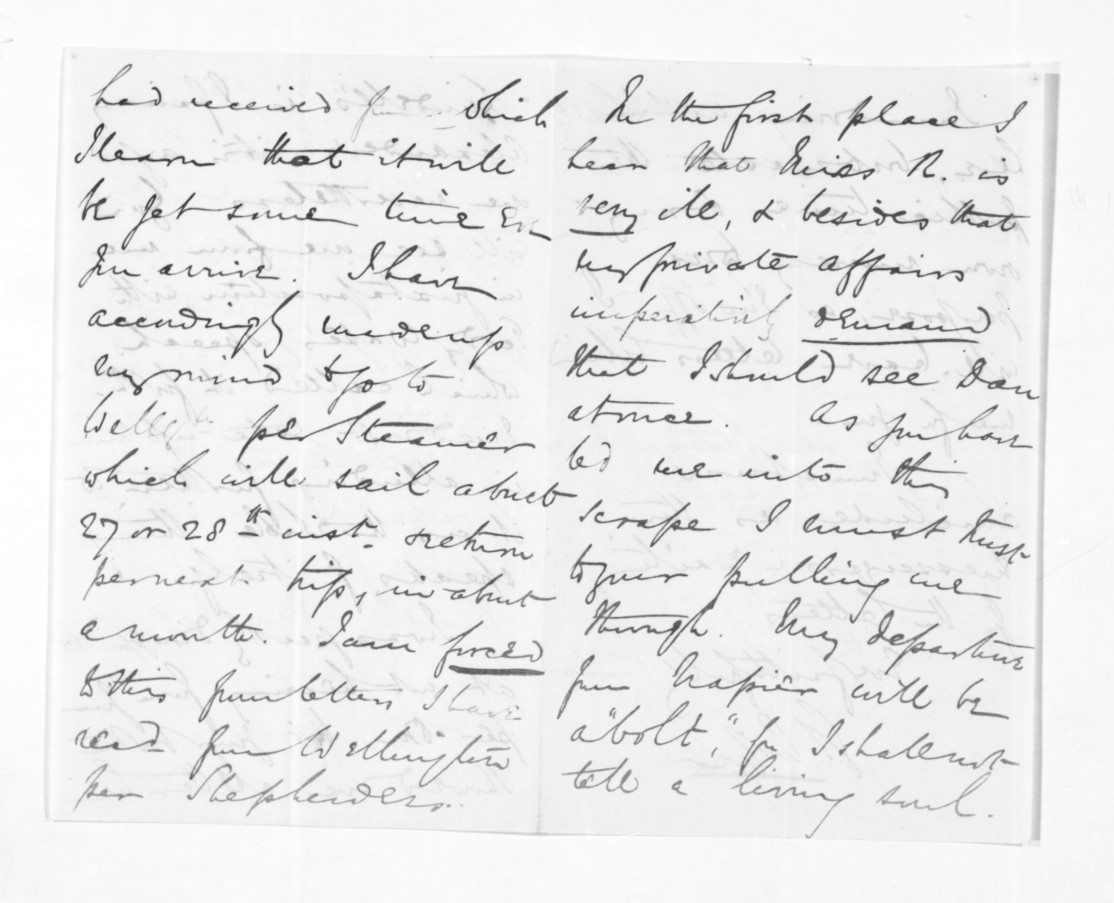 had received from which
I learn that it will
be yet some time ere
you arrive. I have
accordingly made up
my mind to go to
Wellgtn per Steamer
which will sail about
27 or 28th inst. & return
per next trip, in about
a month. I am forced
to this from letters I have
recd. from Wellington
per Shepherdess.
In the first place I
hear that Miss R. is
very ill, & besides that
my private affairs
imperatively demand
that I should see Dan
at once. As you have
led me into this
scrape I must trust
to your pulling me
through. My departure
from Napier will be
a "bolt", for I shall not
tell a living soul.